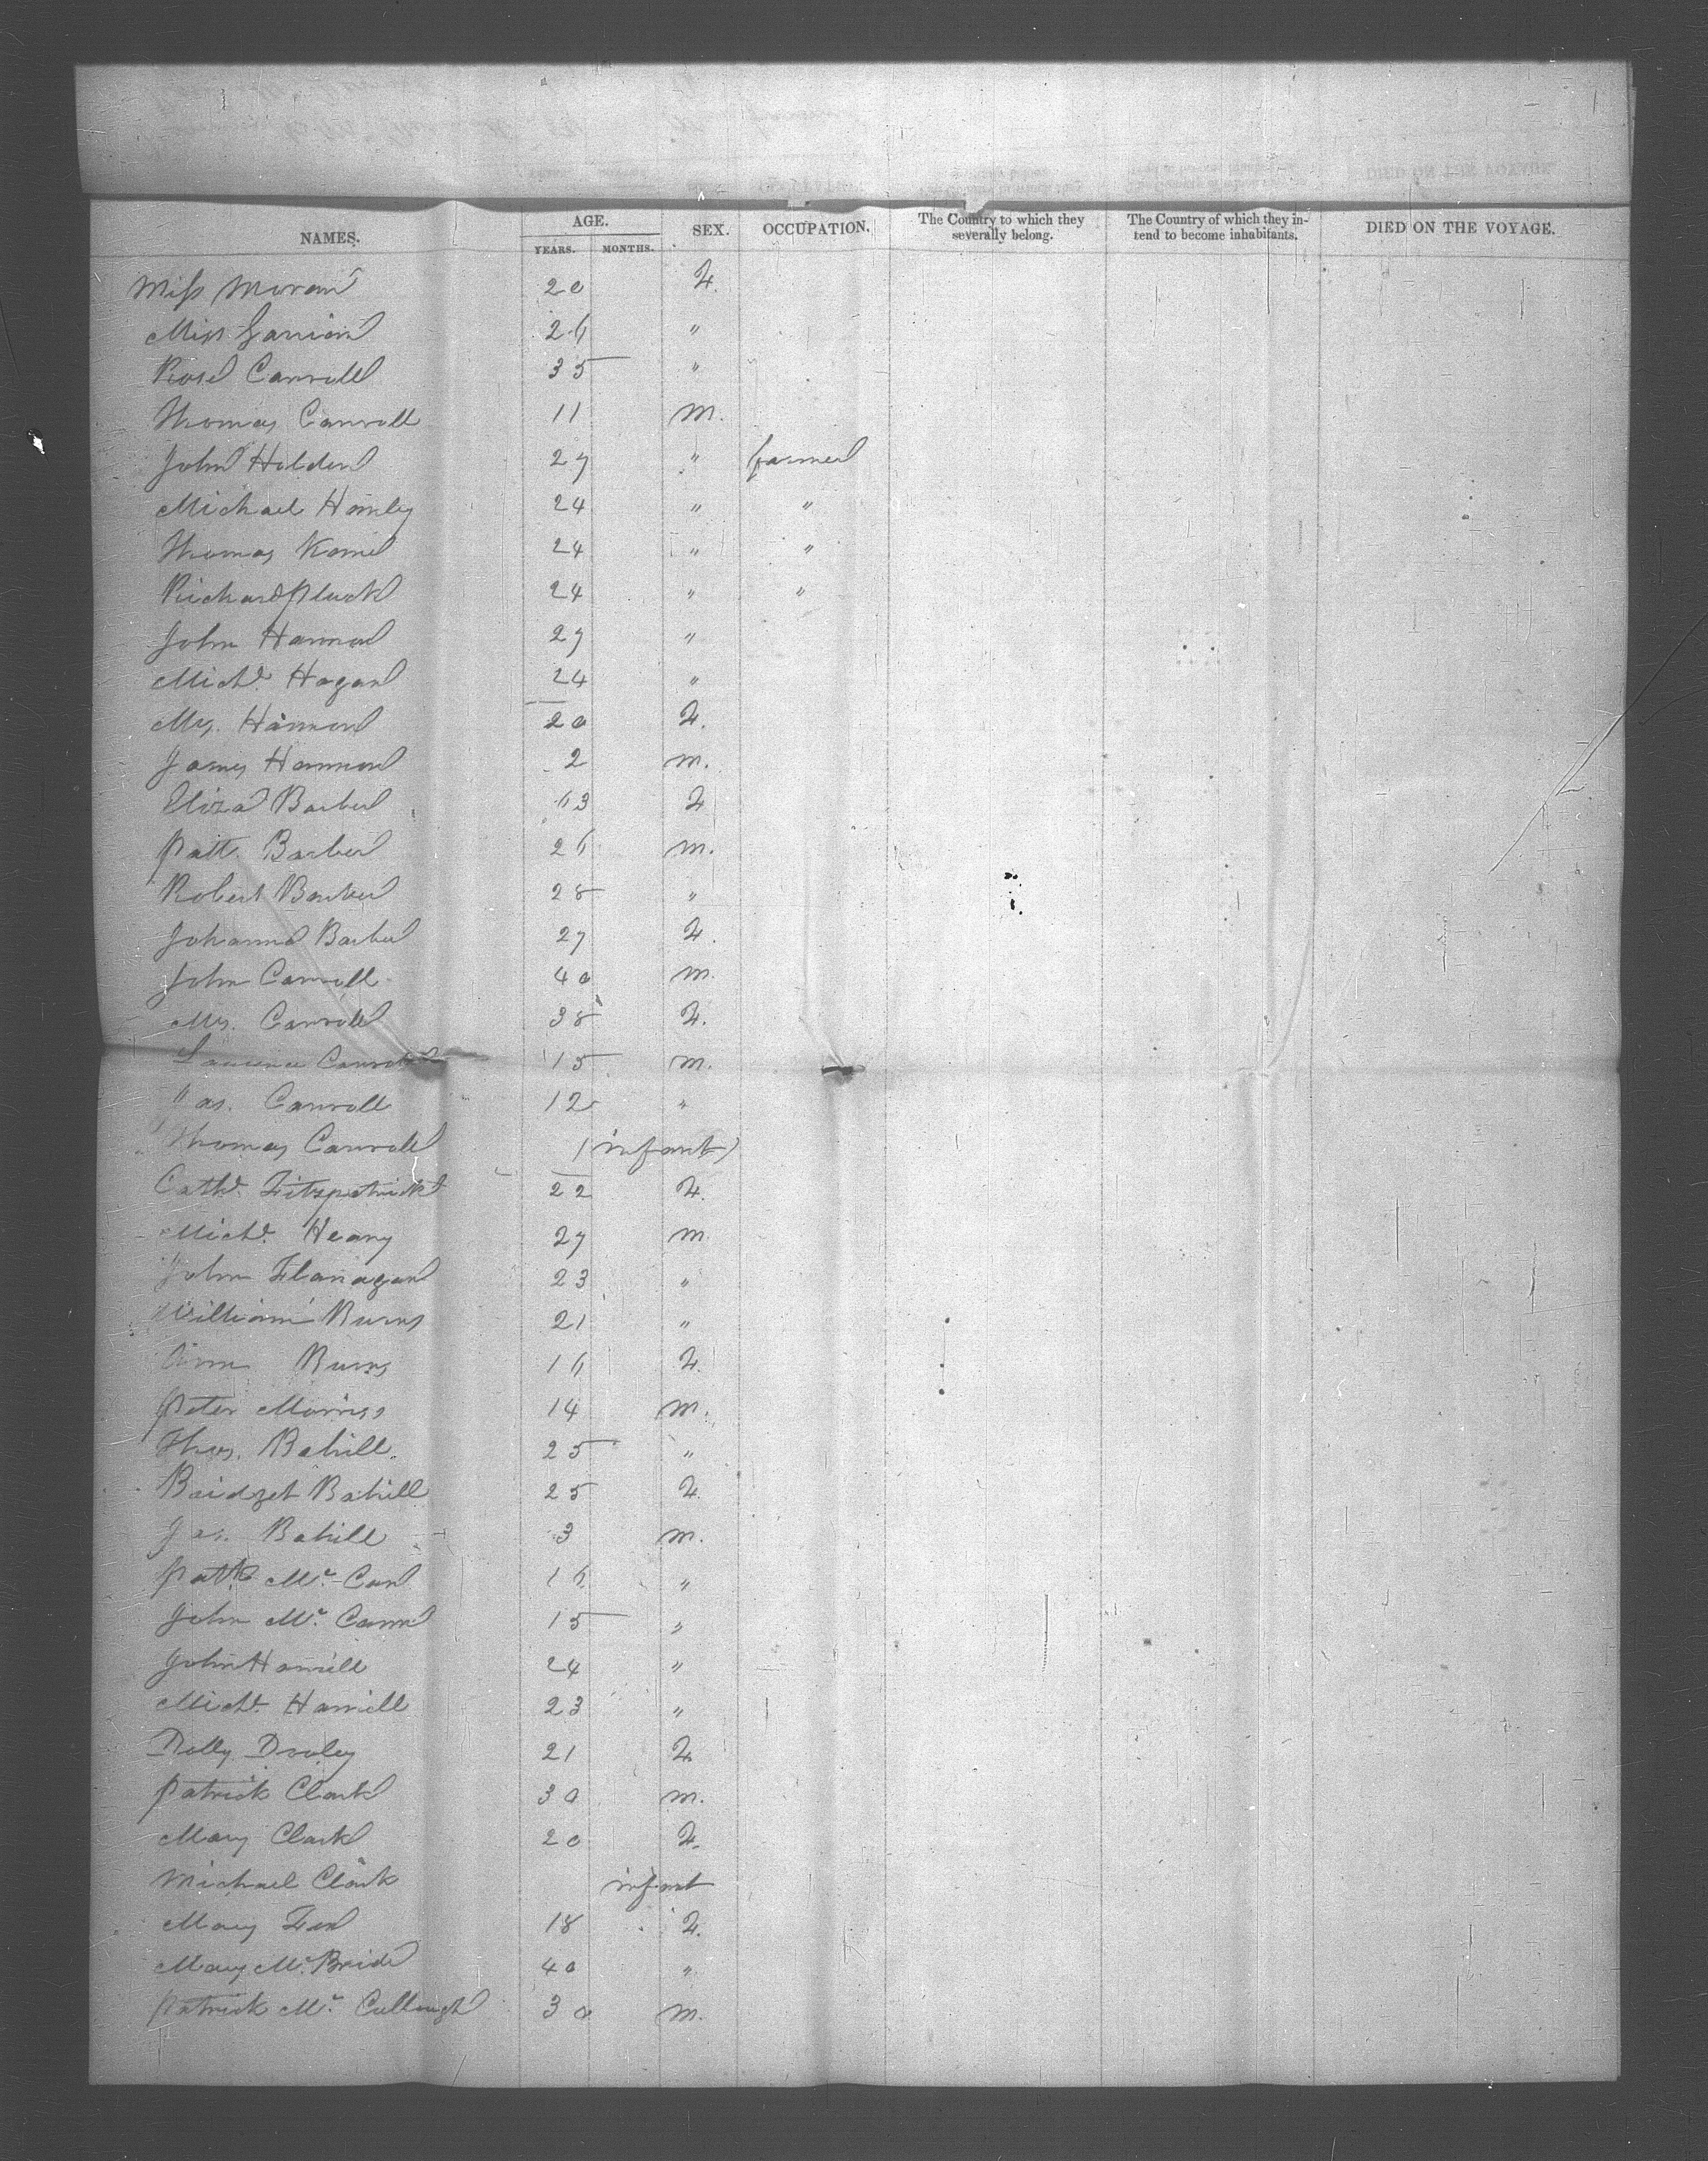 NAMES. AGE. YEARS. MONTHS. SEX. OCCUPATION. The Country to which they severally belong. The Country of which they intend to become inhabitants. DIED ON THE VOYAGE.
Miss Moran 20 F.
Miss 26 "
Rose Carroll 35 "
Thomas Carroll 11 m.
John Holden 27 " farmer
Michael Hanley 24 " "
Thomas 24 " "
Richard Pluck 24 " "
John Hannon 27 "
Michl. Hogan 24 "
Mrs. Hannon 20 F.
James Hannon 2 m.
Eliza Barber 63 F
Patt. Barber 26 m.
Robert Barber 28 "
Johanna Barber 27 F.
John Carroll 40 m.
Mrs. Carroll 38 F.
Laurence Carroll 15 m.
Jas. Carroll 12 "
Thomas Carroll 1 infant
Cath. Fitzpatrick 22 F.
Michl. Heany 27 m
John Flanagan 23 "
William Burns 21 "
Ann Burns 16 F.
Peter Morriss 14 m.
Thos. Bahill. 25 "
Bridget Bahill 25 F.
Jas. Bahill 3 m.
Patk. Mc. Can 16 "
John Mc. Cann 15 "
John Hamill 24 "
Michl. Hamill 23 "
Dolly Dooley 21 F
Patrick Clark 30 m.
Mary Clark 20 F.
Michael Clark infant
Mary 18 F.
Mary Mc. Bride 40 "
Patrick Mc. Cullough 30 m.